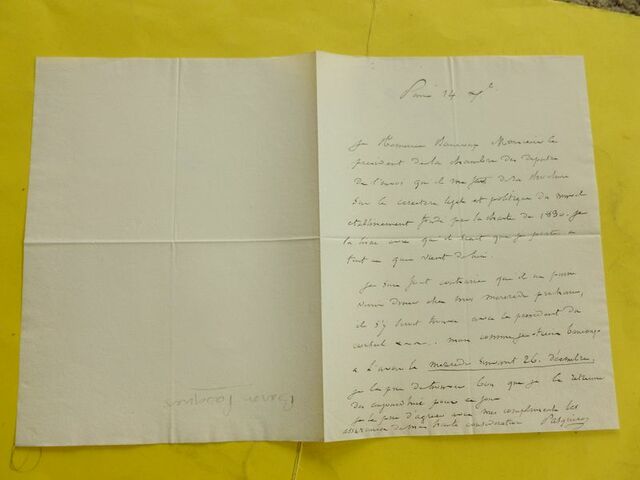 Paris 14 Xbre
Je remercie beaucoup Monsieur le
président de la chambre des députés
de l'envoi qu'il me fait de sa brochure
sur le caractère légal et politique du nouvel
établissement fondé par la charte de 1830. Je
la lirai avec qu'il sait que je porte à
tout ce qui vient de lui.
Je suis fort contrarié que il ne puisse
venir diner chez moi mercredi prochain,
il s'y serait trouvé avec le président du
conseil mais comme je tiens beaucoup
à l'avoir le mercredi suivant 26 décembre,
je le prie de trouver bon que je le retienne
dès aujourd'hui pour ce jour
Je le prie d'agréer avec mes compliments les
assurances de ma haute considération Pasquier
Baron Pasquier